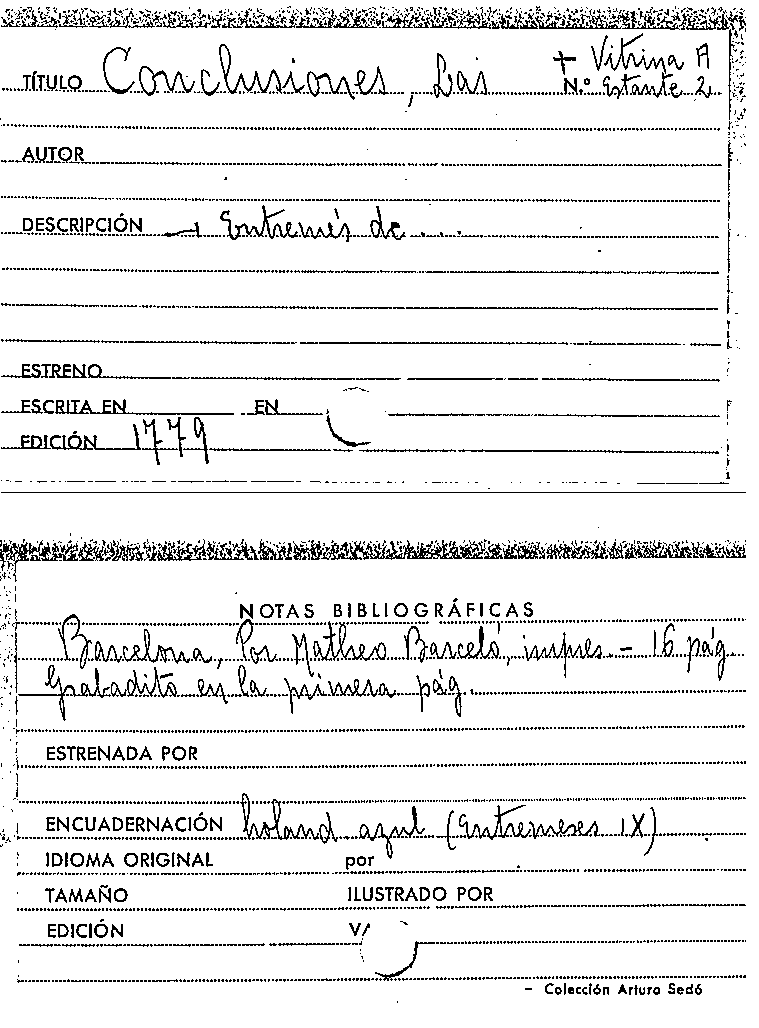 TÍTULO Conclusiones, Las
+ Vitrina A
N.º Estante 2
AUTOR
DESCRIPCIÓN → Entremés de....
ESTRENO
ESCRITA EN EN
EDICIÓN 1779
NOTAS BIBLIOGRÁFICAS
Barcelona, Por Matheo Barceló, impres. - 16 pág
Grabadito en la primera pág.
ESTRENADA POR
ENCUADERNACIÓN holand azul (Entremeses IX)
IDIOMA ORIGINAL por
TAMAÑO ILUSTRADO POR
EDICIÓN
- Colección Arturo Sedó